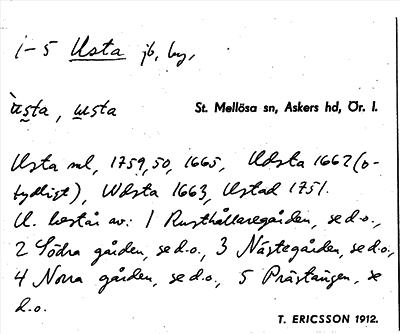 1–5 Usta jb, by,
ùsta, usta
St. Mellösa sn, Askers hd, Ör. l.
Usta ml, 1759, 50, 1665, Udsta 1662 (o-
tydligt), Wdsta 1663, Ustad 1751.
U. består av: 1 Rusthållaregården, se d.o.,
2 Södra gården, se d.o., 3 Nästegården, se d.o.,
4 Norra gården, se d.o., 5 Prästängen, se
d.o.
T. ERICSSON 1912.